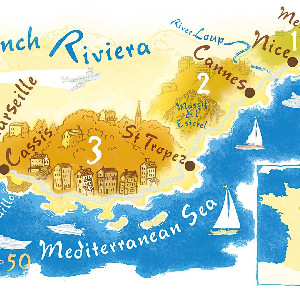 nch Riviera
River Loup
Me
1
Nice
Cannes
2
Massif
de l'
Esterel
arseille
Cassis
3
St Tropez
Mediterranean Sea
50